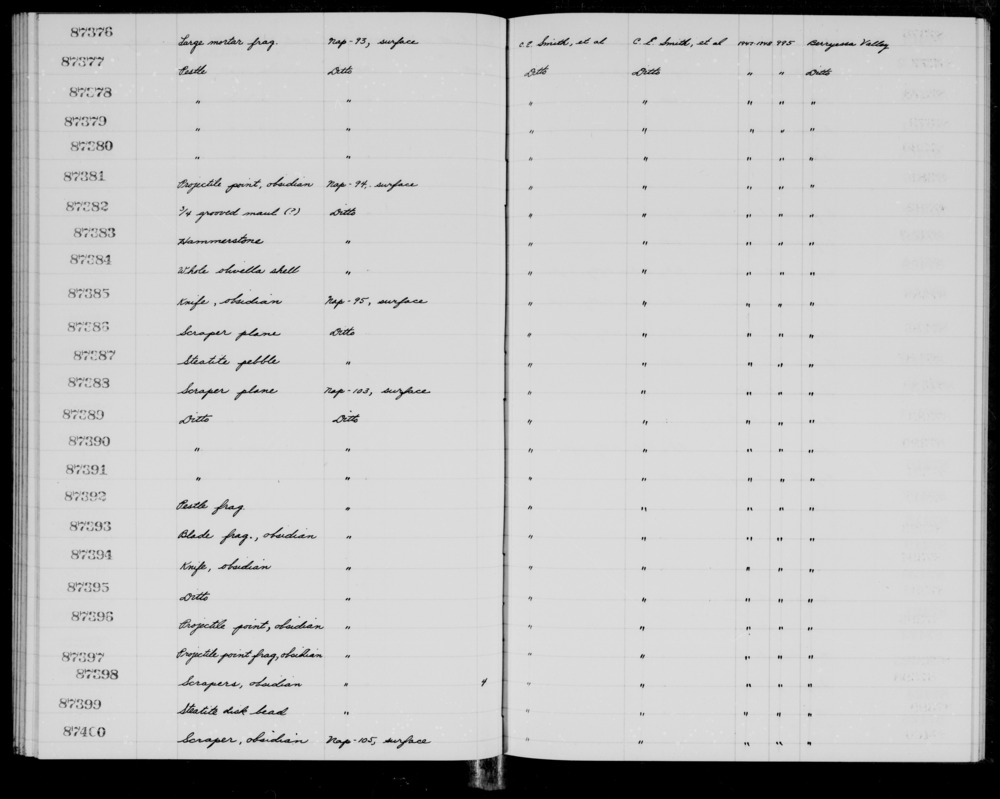 87376 Large mortar frag. Nap-93, surface C.E. Smith, et al C.E. Smith, et al 1947-1948 995 Berryessa Valley
87377 Pestle Ditto Ditto Ditto " " Ditto
87378 " " " " " " "
87379 " " " " " " "
87380 " " " " " " "
87381 Projectile point, obsidian Nap-94, surface " " " " "
87382 3/4 grooved maul (?) Ditto " " " " "
87383 Hammerstone " " " " " "
87384 Whole olivella shell " " " " " "
87385 Knife, obsidian Nap-95, surface " " " " "
87386 Scraper plane Ditto " " " " "
87387 Steatite pebble " " " " " "
87388 Scraper plane Nap-103, surface " " " " "
87389 Ditto Ditto " " " " "
87390 " " " " " " "
87391 " " " " " " "
87392 Pestle frag. " " " " " "
87393 Blade frag., obsidian " " " " " "
87394 Knife, obsidian " " " " " "
87395 Ditto " " " " " "
87396 Projectile point, obsidian " " " " " "
87397 Projectile point frag, obsidian " " " " " "
87398 Scrapers, obsidian " 4 " " " " "
87399 Steatite disk bead " " " " " "
87400 Scraper, obsidian Nap-105, surface " " " " "